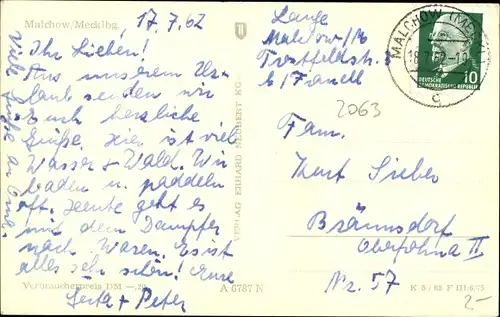 Malchow/Mecklbg.
17.7.62
Ihr Lieben!
Aus unserem Ur-
laub senden wir
Euch herzliche
Grüße. Hier ist viel
Wasser + Wald. Wir
baden u. paddeln
oft. Heute geht es
mit dem Dampfer
nach Waren. Es ist
alles sehr schön! Eure
+ Peter
Viele Grüße an
Verbraucherpreis DM —,20
A 6787 N
VERLAG ERHARD NEUBERT KG
Lange
Malchow/M
b/
MALCHOW (MECKL)
18.7.62
c
DEUTSCHE
DEMOKRATISCHE REPUBLIK
10
2063
Fam.
Kurt Sieber
Bräunsdorf
Oberfrohna II
Nr. 57
K 5/62 F III/6/75
2-